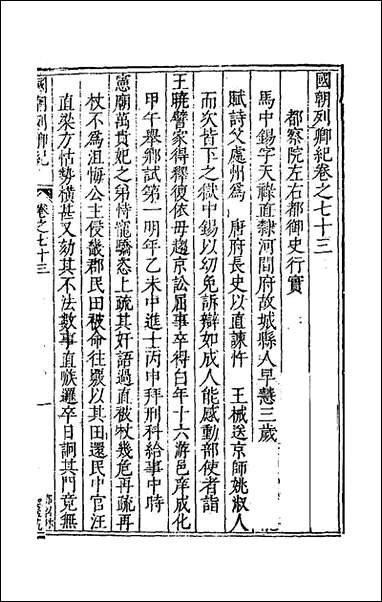 國朝列卿紀卷之七十三
都察院左右都御史行實
馬中錫字天祿直隸河間府故城縣人早慧三歲
賦詩父處州爲 唐府長史以直諫忤 王械送京師姚淑人
而次皆下之獄中錫以幼免訴辯如成人能感動部使者詣
王曉譬家得釋復依母趨京訟屈事卒得白年十六游邑庠成化
甲午舉鄉試第一明年乙未中進士丙申拜刑科給事中時
憲廟萬貴妃之弟恃寵驕恣上疏其奸語過直被杖幾危再疏再
杖不爲沮悔公主侵畿郡民田被命往覈以其田還民中官汪
直梁方怙勢橫甚又劾其不法數事直嗾邏卒日詗其門竟無
國朝列卿紀
卷之七十三
一